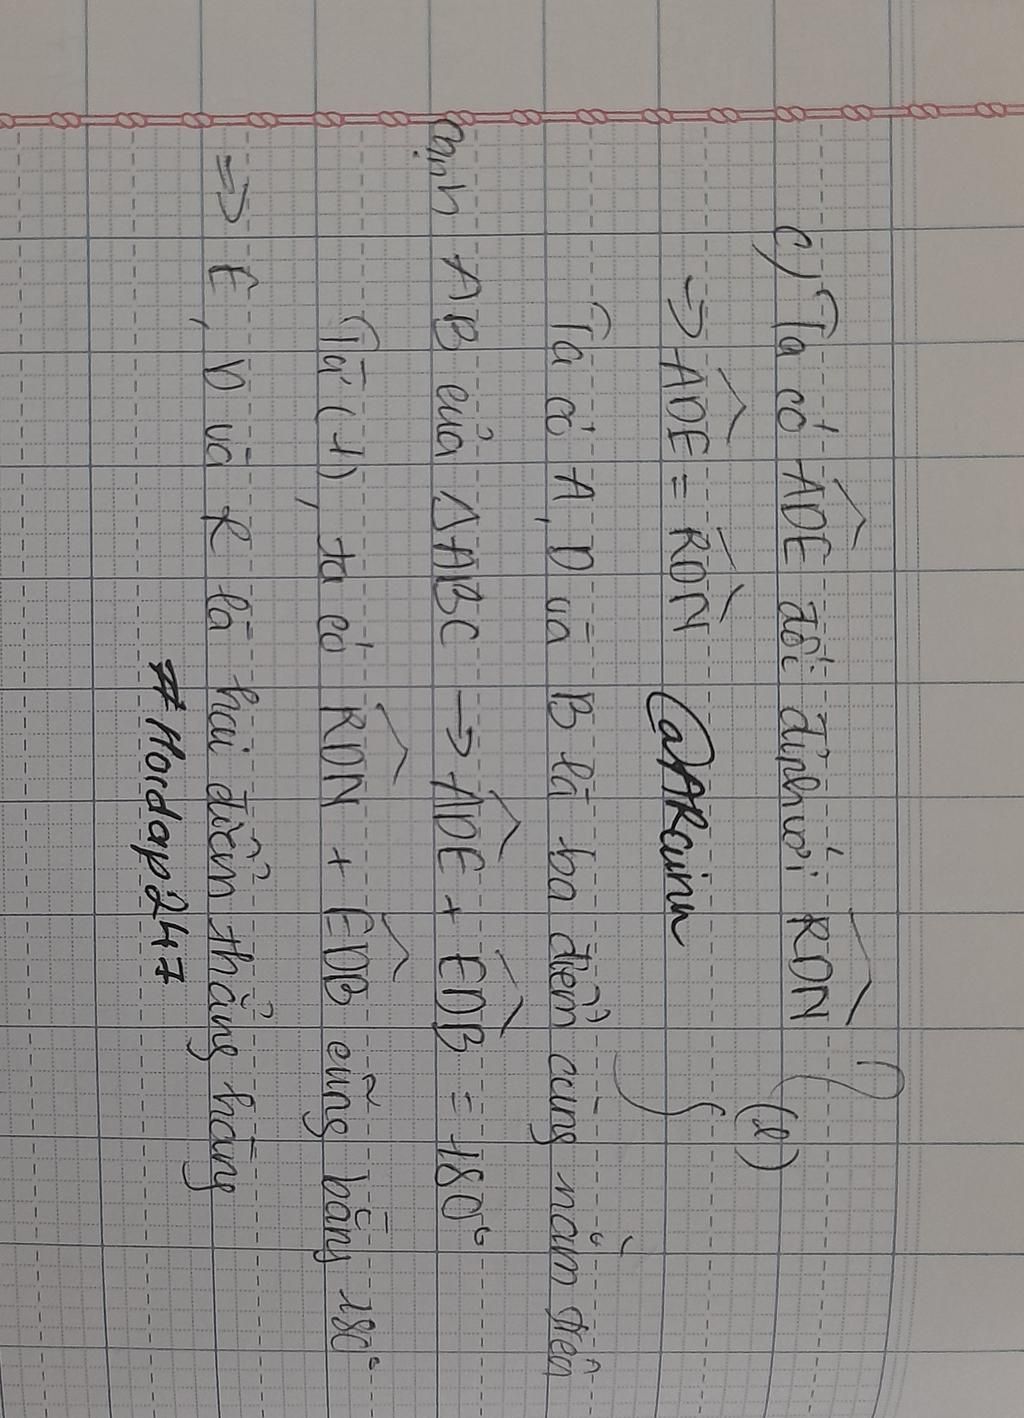 c) Ta có ADE đối đỉnh với RDN
(1)
→ ADE = RDN @ARainn
Ta có A, D và B là ba điểm cùng nằm trên
cạnh AB của ΔABC → ADE + EDB = 180°
Từ (1), ta có RDN + EDB cũng bằng 180°
=> E, D và R là hai điểm thẳng hàng
#Hoidap247